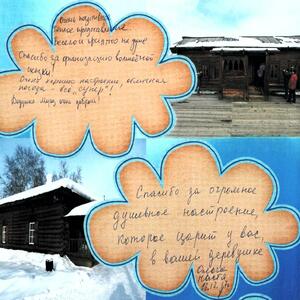 Очень позитив
ное представление
весело и приятно на душе
Спасибо за организацию волшебной
сказки!
Очень хорошее настроение, отличная
погода - все "супер"!
Дедушка Мороз очень добрый!
Спасибо за огромное
душевное настроение,
которое царит у вас,
в вашей деревушке
Ольга
Настя